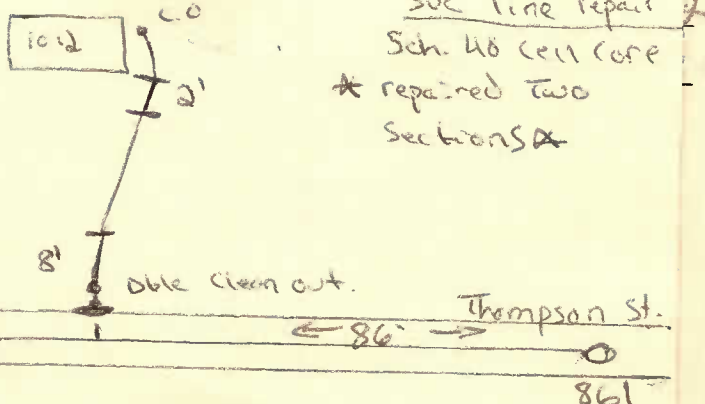 C.O
SVC line repair
1012
Sch. 40 Cell Core
2'
* repaired Two
Sections *
8'
Dble Clean out.
Thompson St.
← 86' →
861